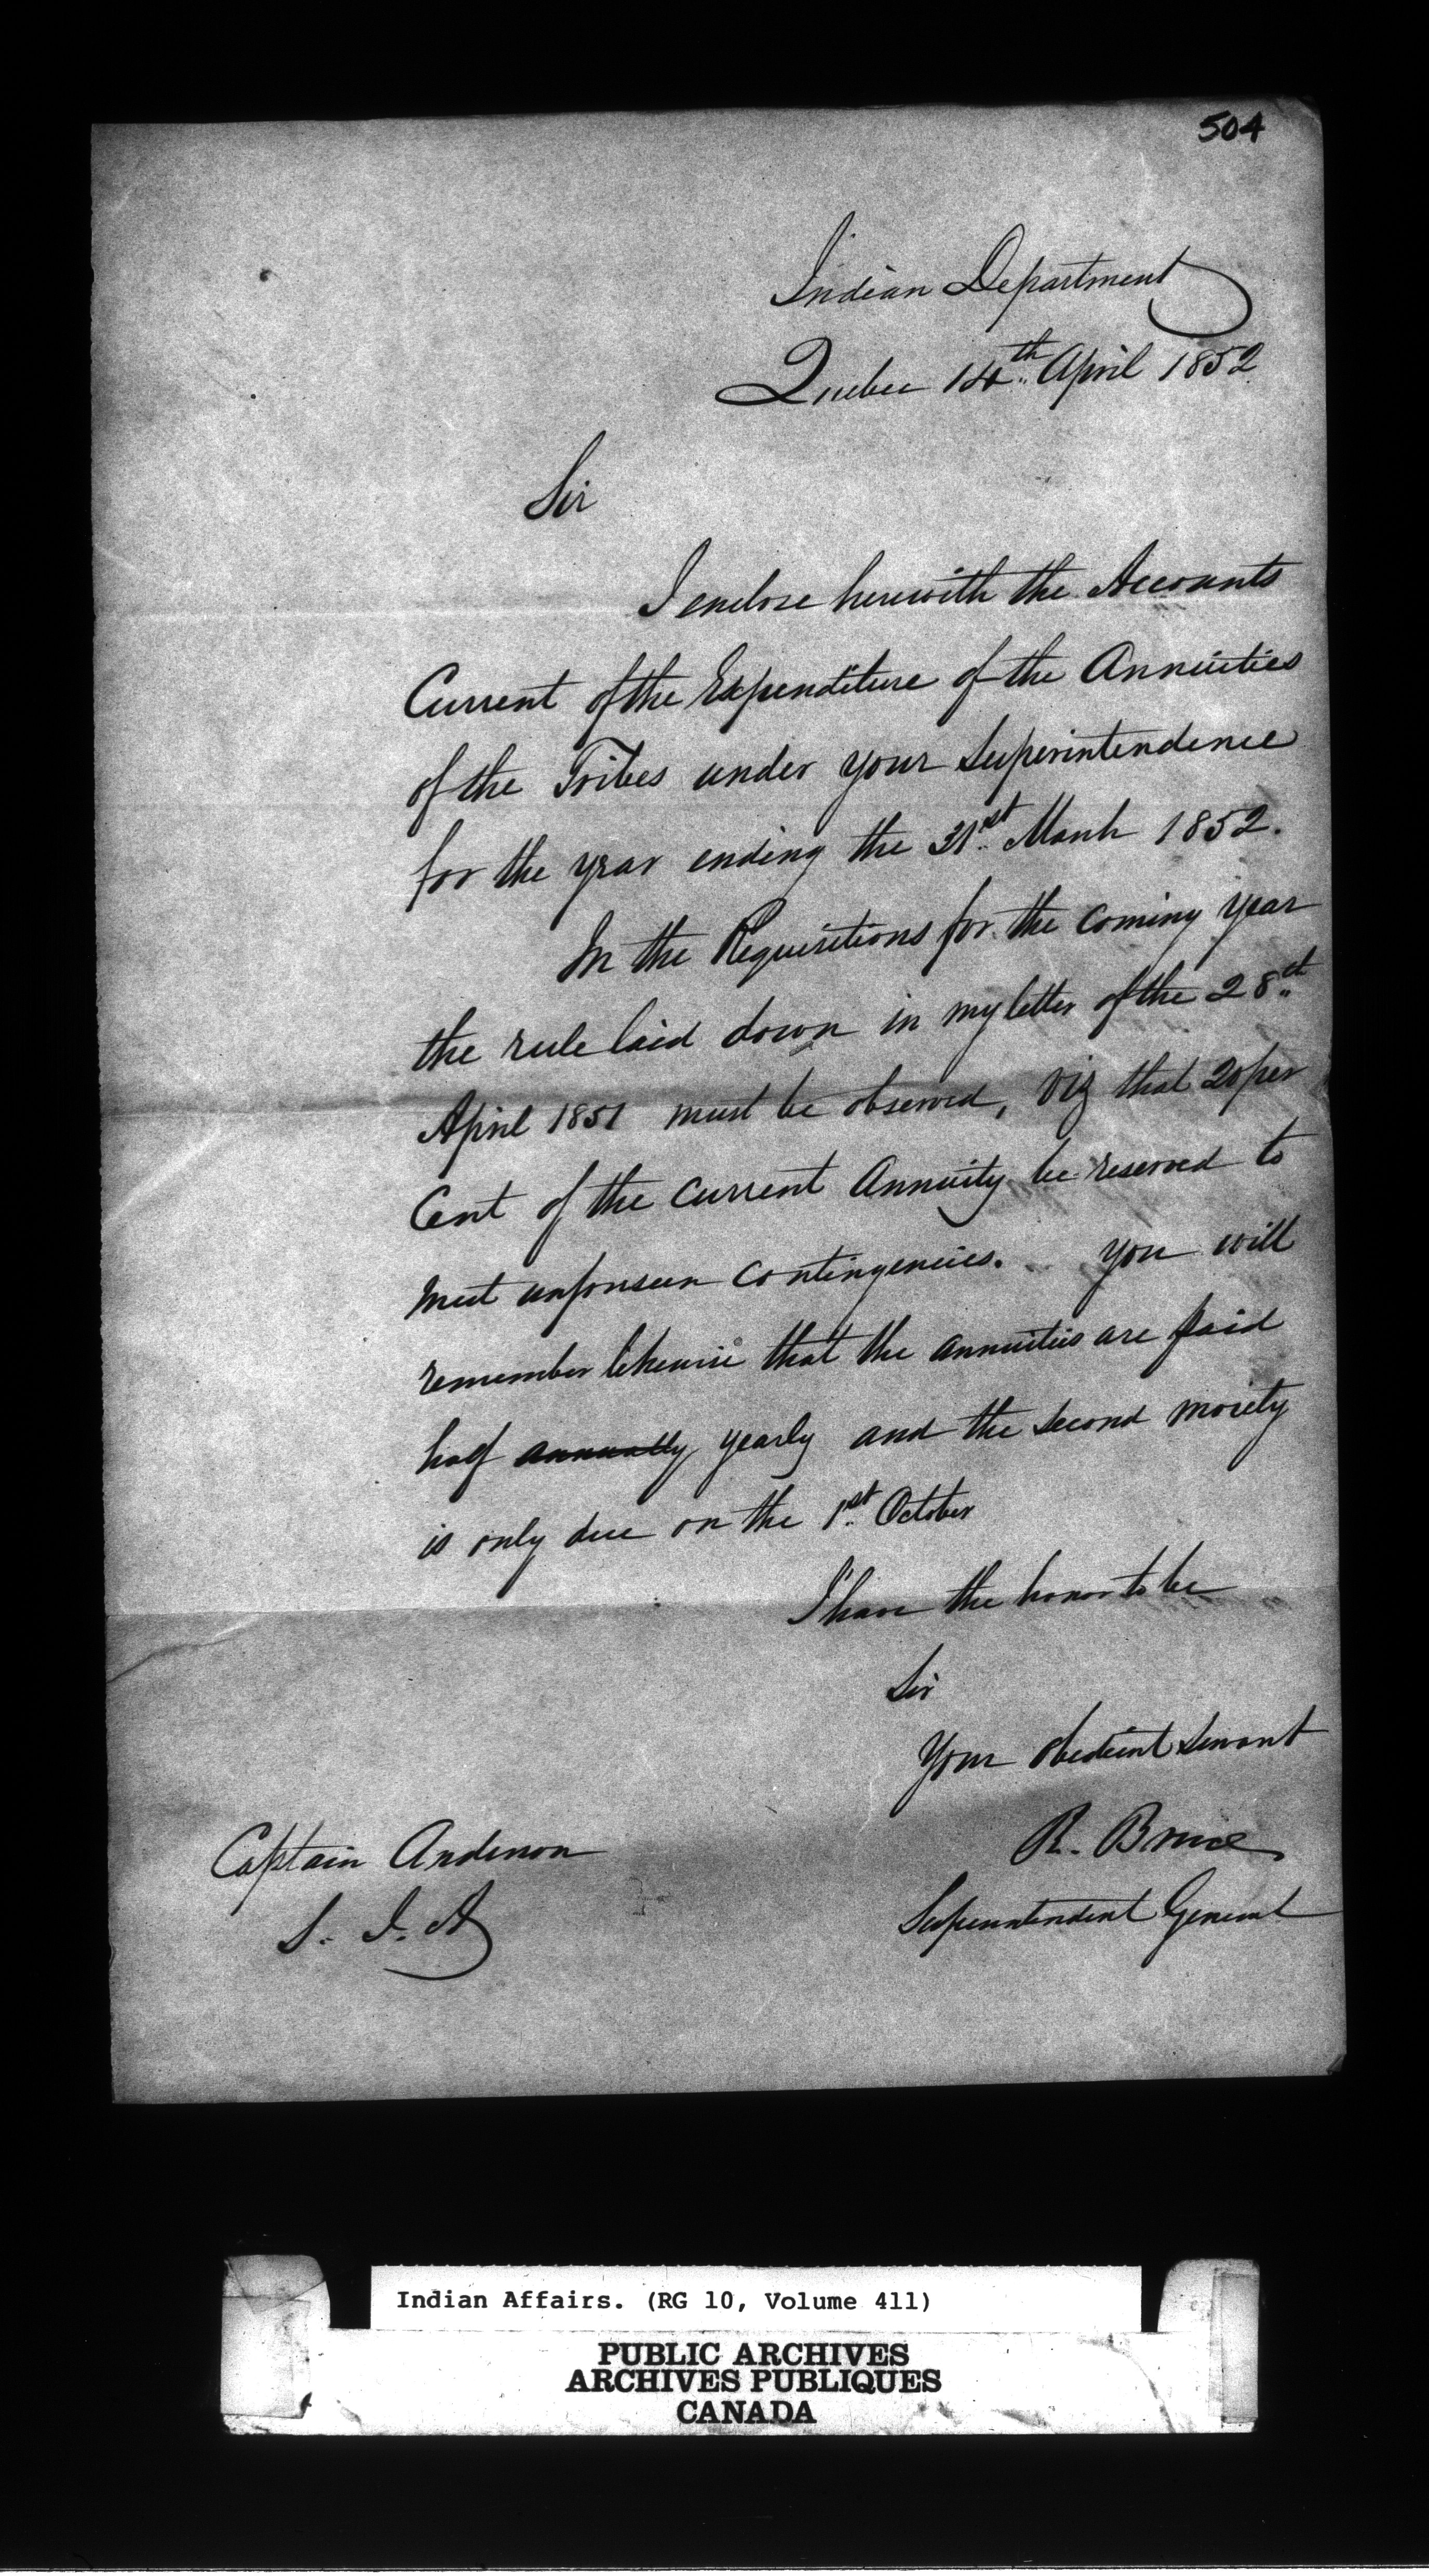 504
Indian Department
Quebec 14th April 1852
Sir
I enclose herewith the Accounts
Current of the Expenditure of the Annuities
of the Tribes under your Superintendence
for the year ending the 31st March 1852.
In the Requisitions for the coming year
the rule laid down in my letter of the 28th
April 1851 must be observed, viz that 20 per
Cent of the current Annuity be reserved to
meet unforseen contingencies. You will
remember likewise that the annuities are paid
half annually yearly and the second moiety
is only due on the 1st October
I have the honor to be
Sir
Your obedient servant
R. Bruce
Superintendent General
Captain Anderson
S. I. A
Indian Affairs. (RG 10, Volume 411)
PUBLIC ARCHIVES
ARCHIVES PUBLIQUES
CANADA